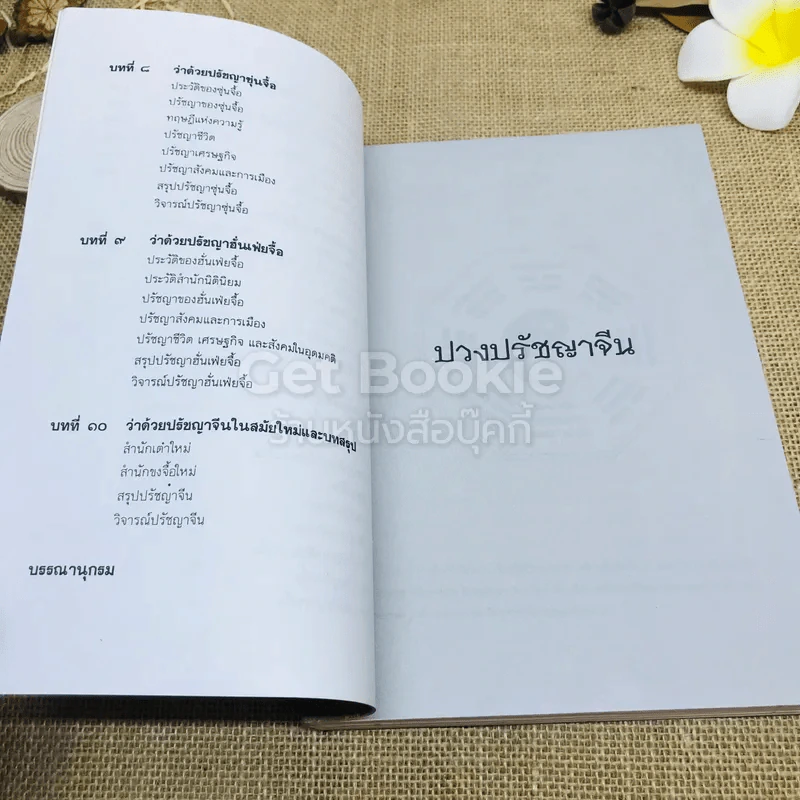 บทที่ ๘ ว่าด้วยปรัชญาซุ่นจื้อ
ประวัติของซุ่นจื้อ
ปรัชญาของซุ่นจื้อ
ทฤษฎีแห่งความรู้
ปรัชญาชีวิต
ปรัชญาเศรษฐกิจ
ปรัชญาสังคมและการเมือง
สรุปปรัชญาซุ่นจื้อ
วิจารณ์ปรัชญาซุ่นจื้อ
บทที่ ๙ ว่าด้วยปรัชญาฮั่นเฟยจื้อ
ประวัติของฮั่นเฟยจื้อ
ประวัติสำนักนิตินิยม
ปรัชญาของฮั่นเฟยจื้อ
ปรัชญาสังคมและการเมือง
ปรัชญาชีวิต เศรษฐกิจ และสังคมในอุดมคติ
สรุปปรัชญาฮั่นเฟยจื้อ
วิจารณ์ปรัชญาฮั่นเฟยจื้อ
บทที่ ๑๐ ว่าด้วยปรัชญาจีนในสมัยใหม่และบทสรุป
สำนักเต๋าใหม่
สำนักขงจื้อใหม่
สรุปปรัชญาจีน
วิจารณ์ปรัชญาจีน
บรรณานุกรม
ปวงปรัชญาจีน
Get Bookie
ร้านหนังสือบุ๊คกี้